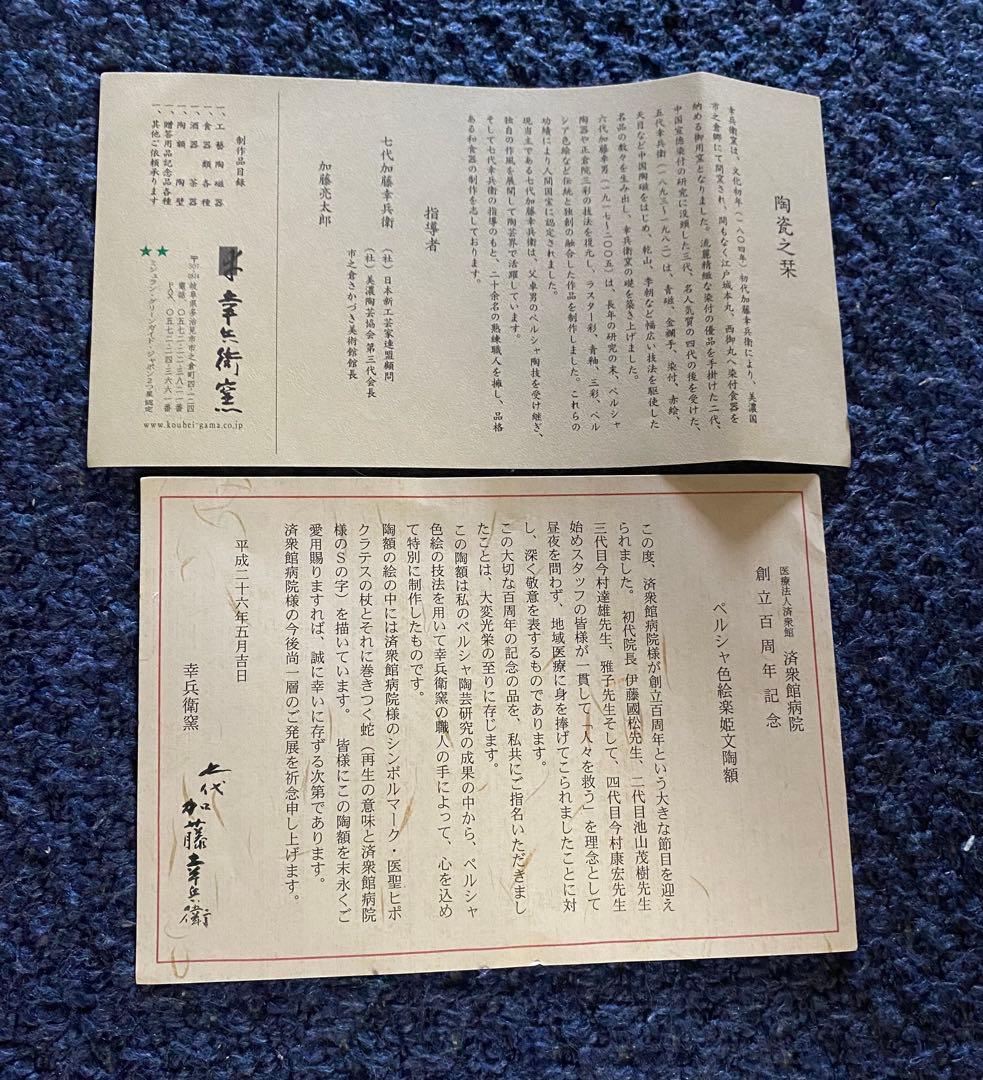 陶瓷之栞
幸兵衛窯は、文化初年(一八〇四年)初代加藤幸兵衛により、美濃国
市之倉郷にて開窯され、間もなく江戸城本丸、西御丸へ染付食器を
納める御用窯となりました。流麗精緻な染付の優品を手掛けた二代、
中国宣徳染付の研究に没頭した三代、名人気質の四代の後を受けた、
五代幸兵衛(一八九三〜一九八二)は、青磁、金襴手、染付、赤絵、
天目など中国陶磁をはじめ、乾山、李朝など幅広い技法を駆使した
名品の数々を生み出し、幸兵衛窯の礎を築き上げました。
六代加藤卓男(一九一七〜二〇〇五)は、長年の研究の末、ペルシャ
陶器や正倉院三彩の技法を復元し、ラスター彩、青釉、三彩、ペル
シア色絵など伝統と独創の融合した作品を制作しました。これらの
功績により人間国宝に認定されました。
現当主である七代加藤幸兵衛は、父卓男のペルシャ陶技を受け継ぎ、
独自の作風を展開して陶芸界で活躍しています。
そして七代幸兵衛の指導のもと、二十余名の熟練職人を擁し、品格
ある和食器の制作を志しております。
指導者
七代加藤幸兵衛
(社)日本新工芸家連盟顧問
(社)美濃陶芸協会第三代会長
市之倉さかづき美術館館長
加藤亮太郎
制作品目録
一、工藝陶磁器
一、食器類各種
一、酒器 茶器
一、陶額 陶壁
一、贈答用品記念品各種
一、其他ご依頼承ります
幸兵衛窯
岐阜県多治見市市之倉町四-一二四
電話 〇五七二-二二-三八二一番
FAX 〇五七二-二四-三六六一番
★★ミシュラン・グリーンガイド・ジャポン2つ星認定
www.koubei-gama.co.jp
医療法人済衆館 済衆館病院
創立百周年記念
ペルシャ色絵楽姫文陶額
この度、済衆館病院様が創立百周年という大きな節目を迎え
られました。 初代院長 伊藤國松先生、二代目池山茂樹先生
三代目今村達雄先生、雅子先生そして、四代目今村康宏先生
始めスタッフの皆様が一貫して「人々を救う」を理念として
昼夜を問わず、地域医療に身を捧げてこられましたことに対
し、深く敬意を表するものであります。
この大切な百周年の記念の品を、私共にご指名いただきまし
たことは、大変光栄の至りに存じます。
この陶額は私のペルシャ陶芸研究の成果の中から、ペルシャ
色絵の技法を用いて幸兵衛窯の職人の手によって、心を込め
て特別に制作したものです。
陶額の絵の中には済衆館病院様のシンボルマーク・医聖ヒポ
クラテスの杖とそれに巻きつく蛇(再生の意味と済衆館病院
様のSの字)を描いています。 皆様にこの陶額を末永くご
愛用賜りますれば、誠に幸いに存ずる次第であります。
済衆館病院様の今後尚一層のご発展を祈念申し上げます。
平成二十六年五月吉日
幸兵衛窯 七代 加藤幸兵衛